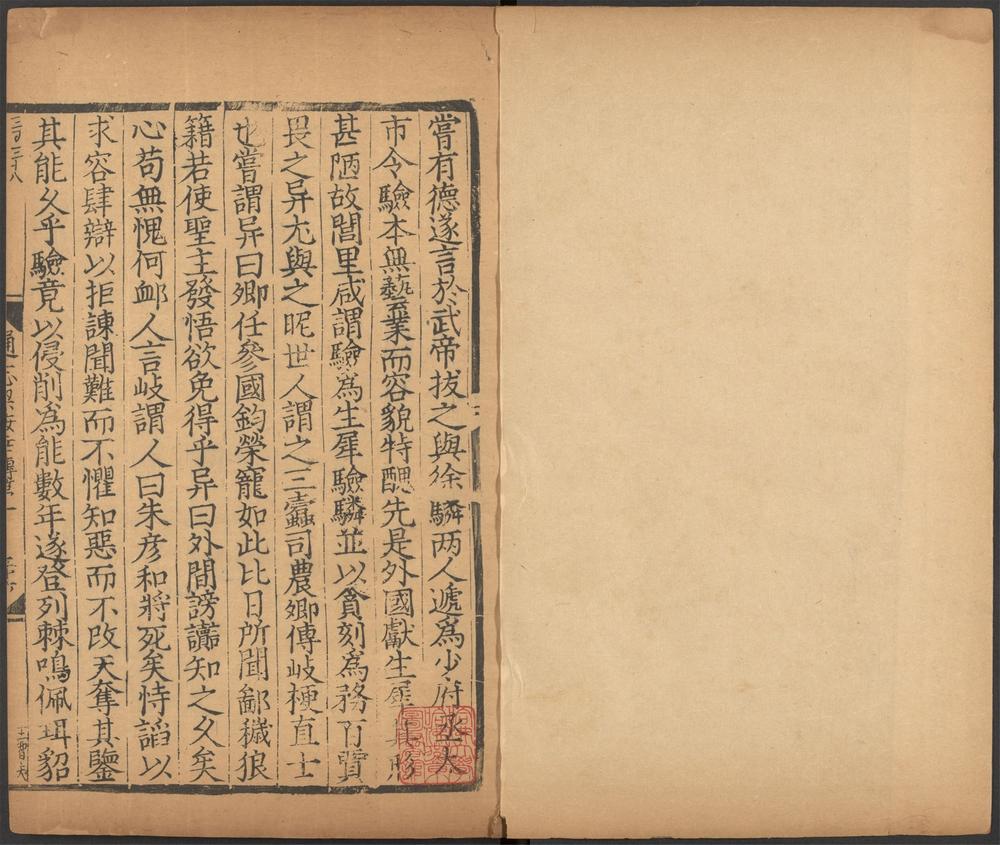 嘗有德遂言於武帝拔之與徐驎两人遞爲少府丞大
市令驗本無藝業而容貌特醜先是外國獻生犀其形
甚陋故閭里咸謂驗爲生犀驗驎並以貪刻爲務百賈
畏之异尤與之昵世人謂之三蠹司農卿傅岐梗直士
也嘗謂异曰卿任參國鈞榮寵如此比日所聞鄙穢狼
籍若使聖主發悟欲免得乎异曰外間謗讟知之久矣
心苟無愧何䘏人言岐謂人曰朱彦和將死矣恃謟以
求容肆辯以拒諫聞難而不懼知惡而不改天奪其鑒
其能久乎驗竟以侵削爲能數年遂登列棘鳴佩珥貂
三百三十八
通志
王曾夫